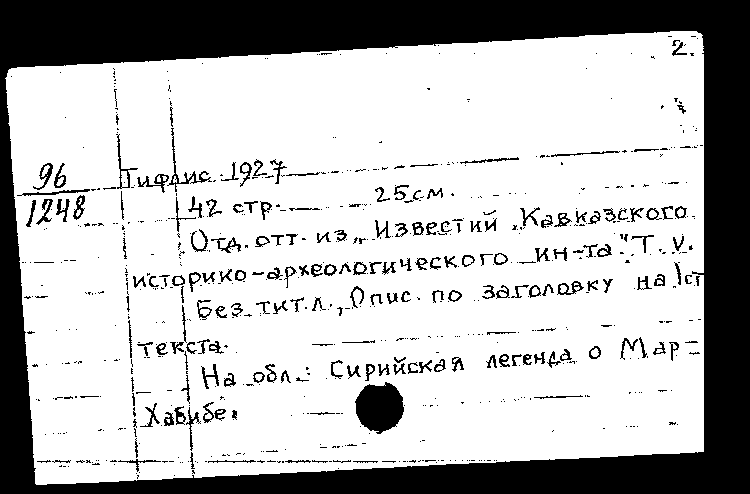 2.
96
1248
Тифлис 1927
42 стр. 25см.
Отд. отт. из „Известий Кавказского
историко-археологического ин-та". Т. V.
Без тит.л., Опис. по заголовку на 1ст
текста.
На обл.: Сирийская легенда о Мар=
Хабибе.